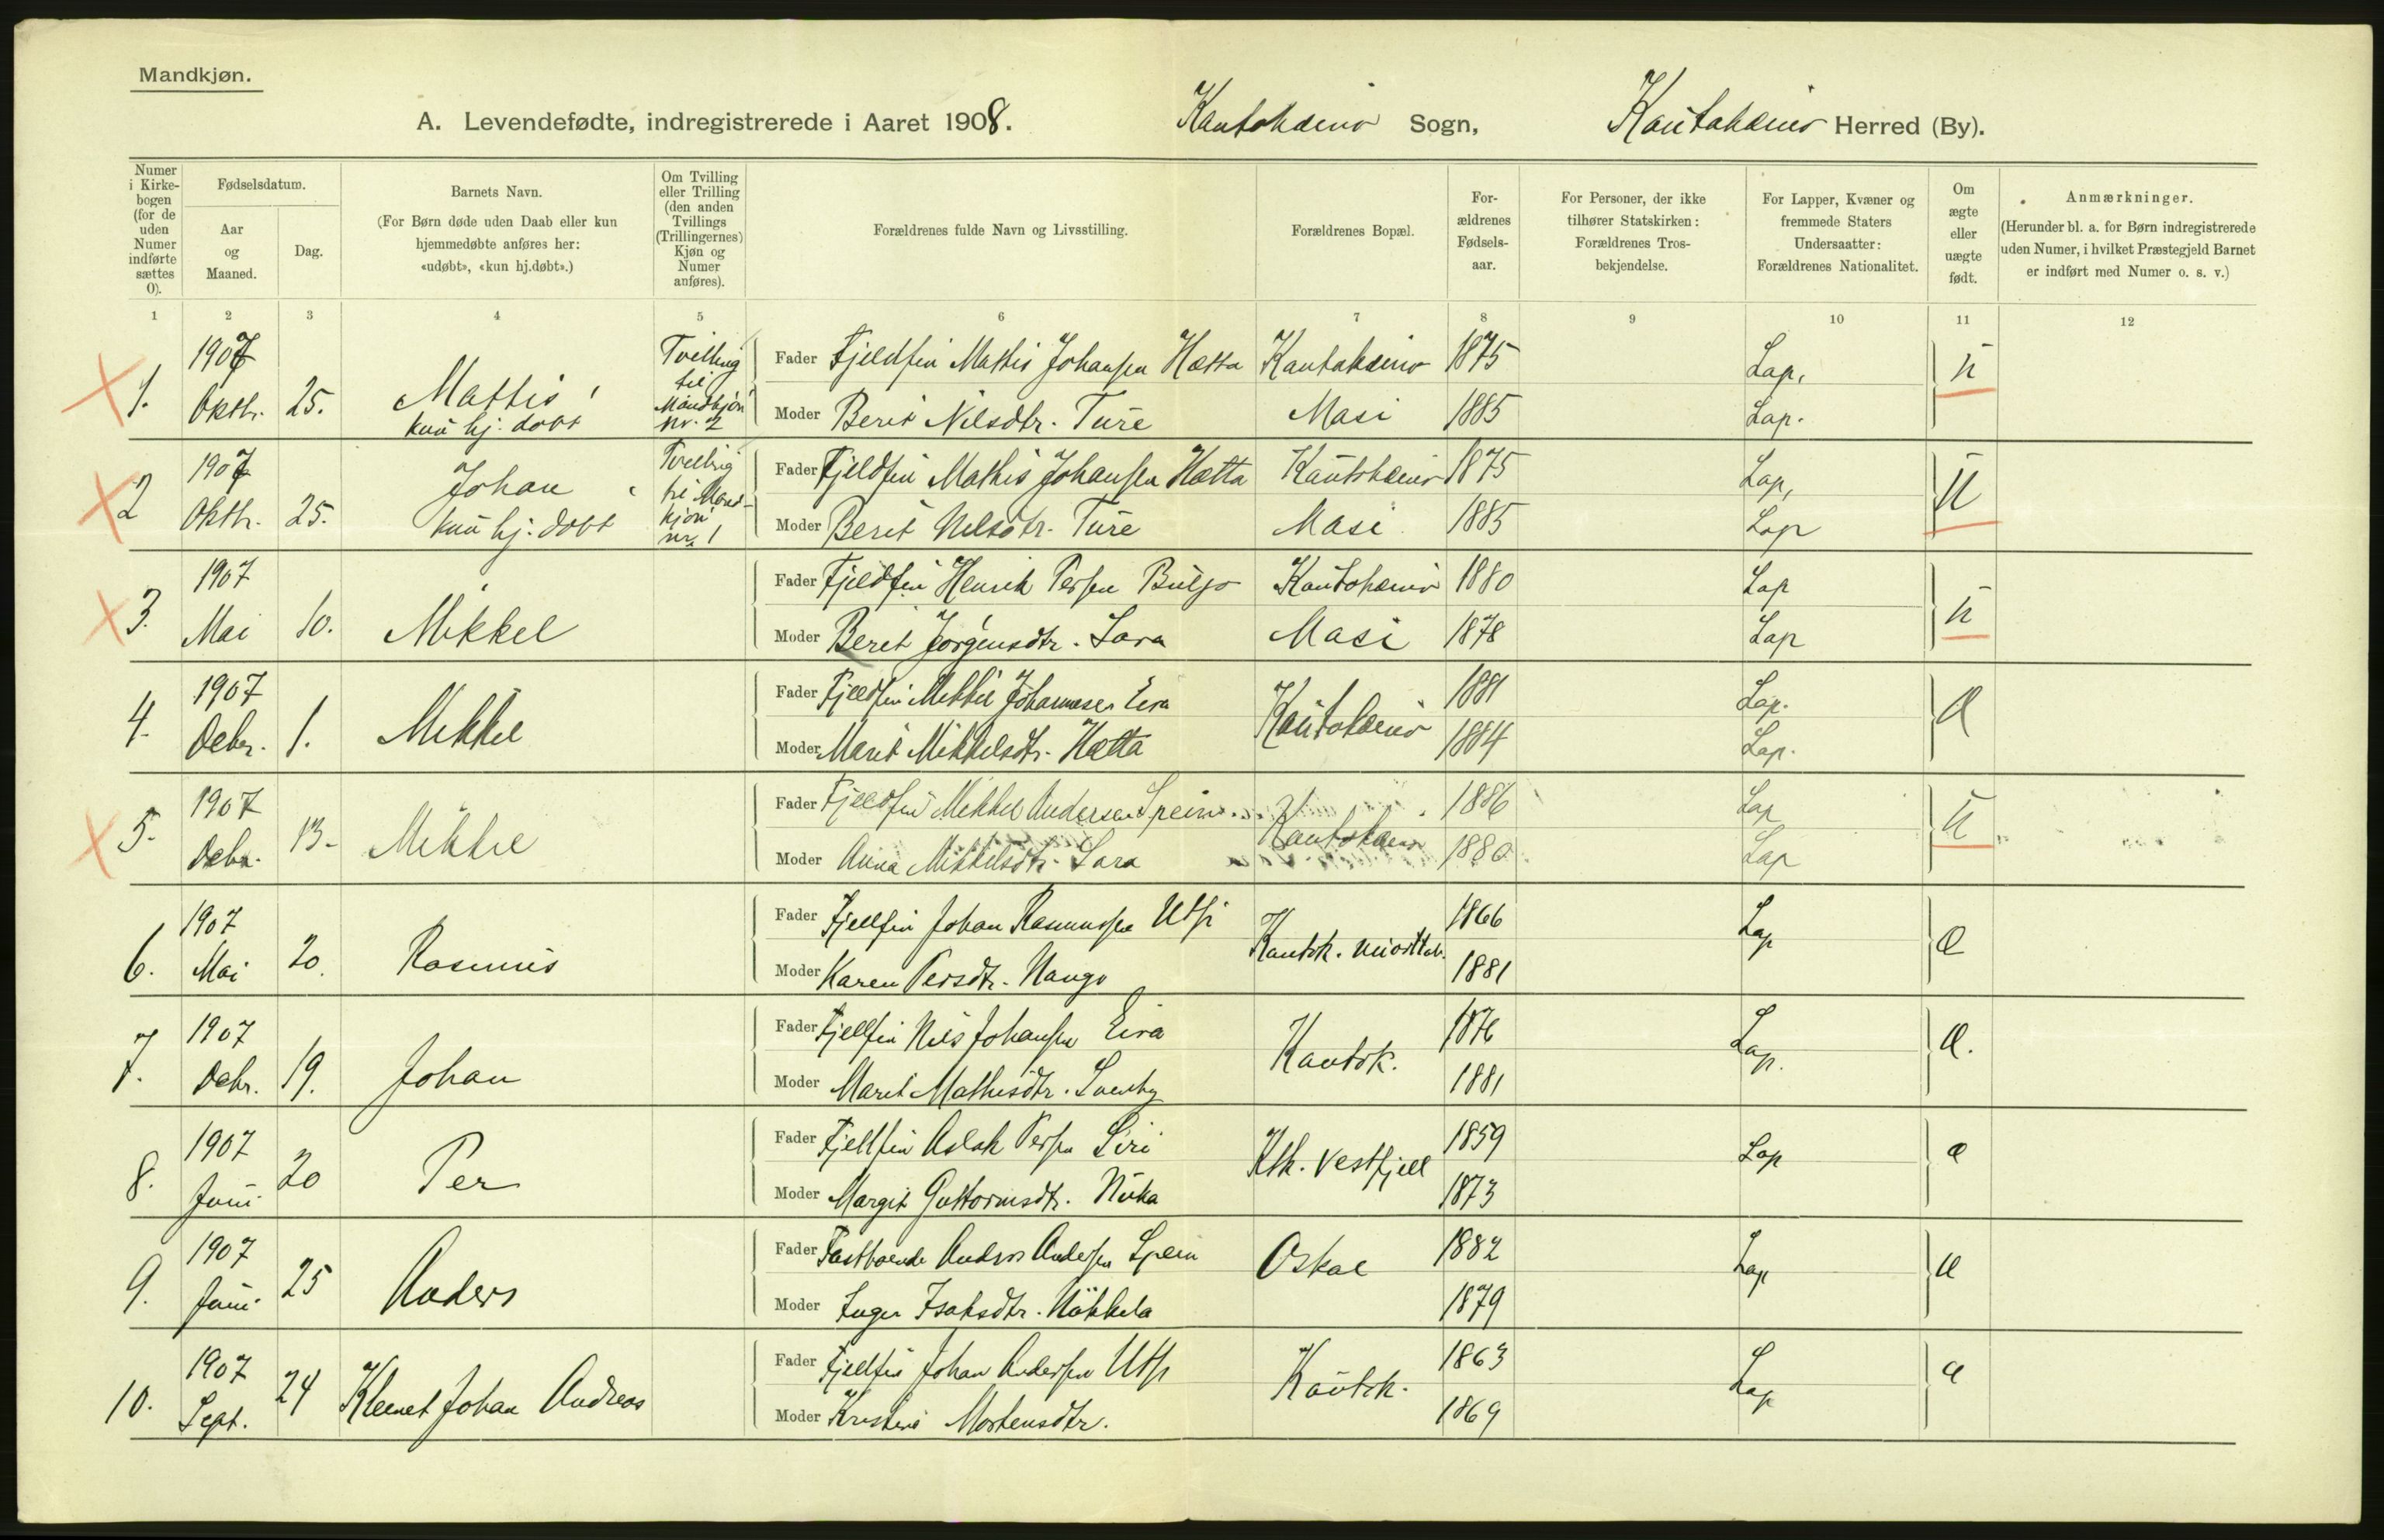 Mandkjøn.
A. Levendefødte, indregistrerede i Aaret 1908. Kautokeino Sogn, Kautokeino Herred (By).
Numer i Kirke-bogen (for de uden Numer indførte sættes 0).
Fødselsdatum.
Aar og Maaned.
Dag.
Barnets Navn.
(For Børn døde uden Daab eller kun hjemmedøbte anføres her: «udøbt», «kun hj.døbt».)
Om Tvilling eller Trilling (den anden Tvillings (Trillingernes) Kjøn og Numer anføres).
Forældrenes fulde Navn og Livsstilling.
Forældrenes Bopæl.
For-ældrenes Fødsels-aar.
For Personer, der ikke tilhører Statskirken: Forældrenes Tros-bekjendelse.
For Lapper, Kvæner og fremmede Staters Undersaatter: Forældrenes Nationalitet.
Om ægte eller uægte født.
Anmærkninger.
(Herunder bl. a. for Børn indregistrerede uden Numer, i hvilket Præstegjeld Barnet er indført med Numer o. s. v.)
1 2 3 4 5 6 7 8 9 10 11 12
1. 1907 Oktbr. 25. Mattis kun hj. døbt Tvilling til Mandkjøn nr. 2
Fader Fjeldfin Mathis Johansen Hætta Kautokeino 1875 Lap. u
Moder Berit Nilsdtr. Ture Masi 1885 Lap.
2 1907 Oktbr. 25. Johan kun hj. døbt Tvilling til Mandkjøn nr. 1
Fader Fjeldfin Mathis Johansen Hætta Kautokeino 1875 Lap, u
Moder Berit Nilsdtr. Ture Masi 1885 Lap
3. 1907 Mai 10. Mikkel
Fader Fjeldfin Henrik Persen Buljo Kautokeino 1880 Lap u
Moder Berit Jørgensdtr. Sara Masi 1878 Lap
4. 1907 Debr. 1. Mikkel
Fader Fjeldfin Mikkel Johannesen Eira Kautokeino 1881 Lap. Æ
Moder Marit Mikkelsdtr. Hætta 1884 Lap.
5. 1907 Debr. 13. Mikkel
Fader Fjeldfin Mikkel Andersen Spein Kautokeino 1886 Lap u
Moder Anna Mikkelsdtr. Sara 1880 Lap
6. 1907 Mai 20. Rasmus
Fader Fjellfin Johan Rasmussen Utsi Kautok. 1866 Lap Æ
Moder Karen Persdtr. Nango 1881
7. 1907 Debr. 19. Johan
Fader Fjellfin Nils Johansen Eira Kautok. 1876 Lap. Æ.
Moder Marit Mathisdtr. 1881
8. 1907 Juni 20 Per
Fader Fjellfin Aslak Persen Siri Ktk. Vestfjell 1859 Lap æ
Moder Margit Guttormsdtr. 1873
9. 1907 Juni 25 Anders
Fader Fastboende Anders Andersen Spein Oskal 1882 Lap æ
Moder Inger Isaksdtr. Näkkela 1879
10. 1907 Sept. 24 Klemet Johan Andreas
Fader Fjellfin Johan Andersen Utsi Kautok. 1863 Lap æ
Moder Kristine Mortensdtr. 1869